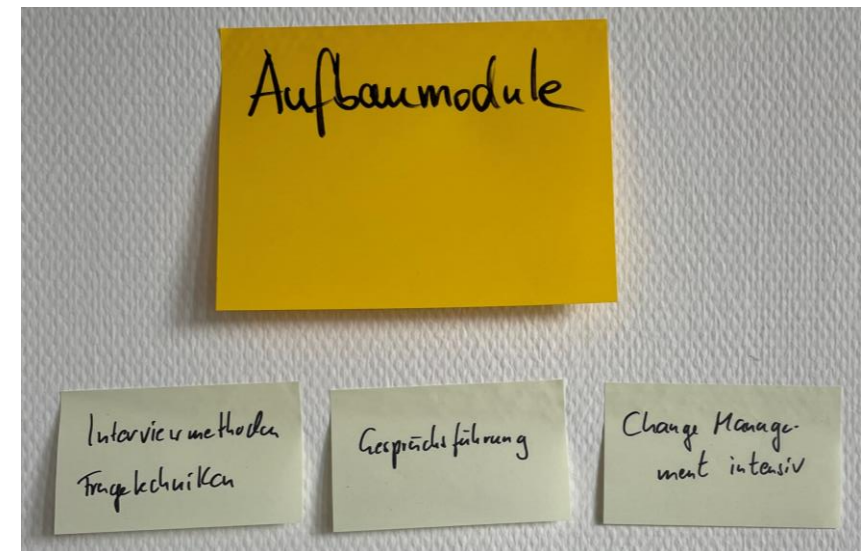 Aufbaumodule
Interviewmethoden
Fragetechniken
Gesprächsführung
Change Manage-
ment intensiv